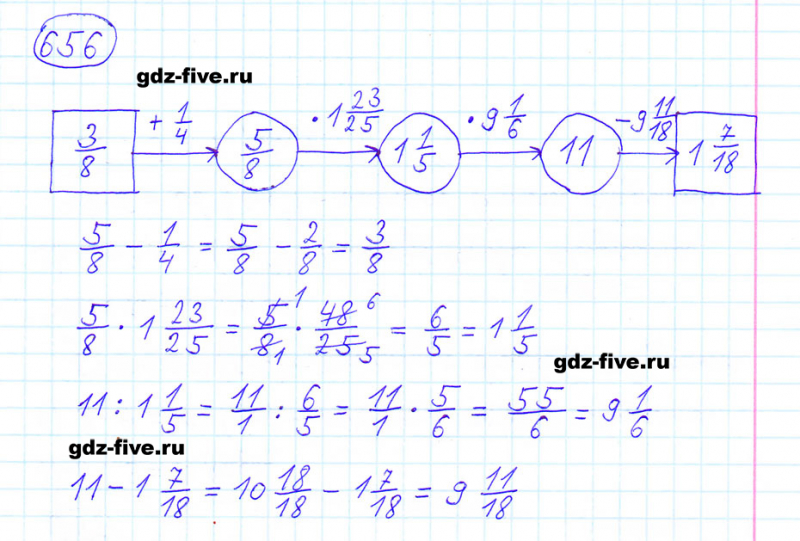 656
gdz-five.ru
3/8 + 1/4 5/8 · 1 23/25 1 1/5 · 9 1/6 11 - 9 11/18 1 7/18
5/8 - 1/4 = 5/8 - 2/8 = 3/8
5/8 · 1 23/25 = 5/8 1 1 · 48/25 6 5 = 6/5 = 1 1/5
gdz-five.ru
11 : 1 1/5 = 11/1 : 6/5 = 11/1 · 5/6 = 55/6 = 9 1/6
gdz-five.ru
11 - 1 7/18 = 10 18/18 - 1 7/18 = 9 11/18